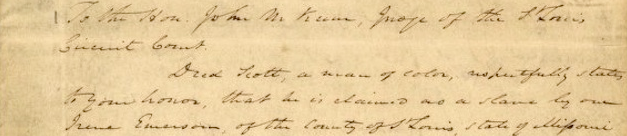 To the Hon. John M. Krum, Judge of the St Louis
Circuit Court,
Dred Scott, a man of color, respectfully states
to your honor, that he is claimed as a slave by one
Irene Emerson, of the County of St Louis, state of Missouri